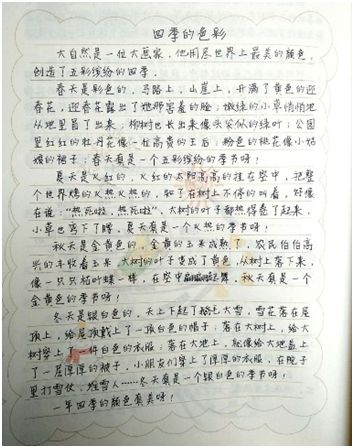 四季的色彩
大自然是一位大画家，他用尽世界上最美的颜色，
创造了五彩缤纷的四季。
春天是彩色的，马路上，山崖上，开满了黄色的迎
春花，迎春花露出了她那害羞的脸；嫩绿的小草悄悄地
从地里冒了出来；柳树也长出来像头发似的绿叶；公园
里红红的牡丹花像一位高贵的王后；粉色的桃花像小姑
娘的裙子；春天真是一个五彩缤纷的季节呀！
夏天是火红的，火红的太阳高高的挂在空中，把整
个世界烧的火热火热的，知了在树上不停的叫着，好像
在说，“热死啦，热死啦”，大树的叶子都热得卷了起来，
小草也弯下了腰，夏天真是一个火热的季节呀！
秋天是金黄色的，金黄的玉米成熟了，农民伯伯高
兴的丰收着玉米，大树的叶子变成了黄色，从树上落下来，
像一只只枯叶蝶一样，在空中翩翩起舞，秋天真是一个
金黄色的季节呀！
冬天是银白色的，天上下起了鹅毛大雪，雪花落在屋
顶上，给屋顶戴上了一顶白色的帽子；落在大树上，给大
树穿上了一件白色的衣服；落在大地上，就像给大地盖上
了一层厚厚的被子，小朋友们穿上了厚厚的衣服，在院子
里打雪仗，堆雪人……冬天真是一个银白色的季节呀！
一年四季的颜色真美呀！